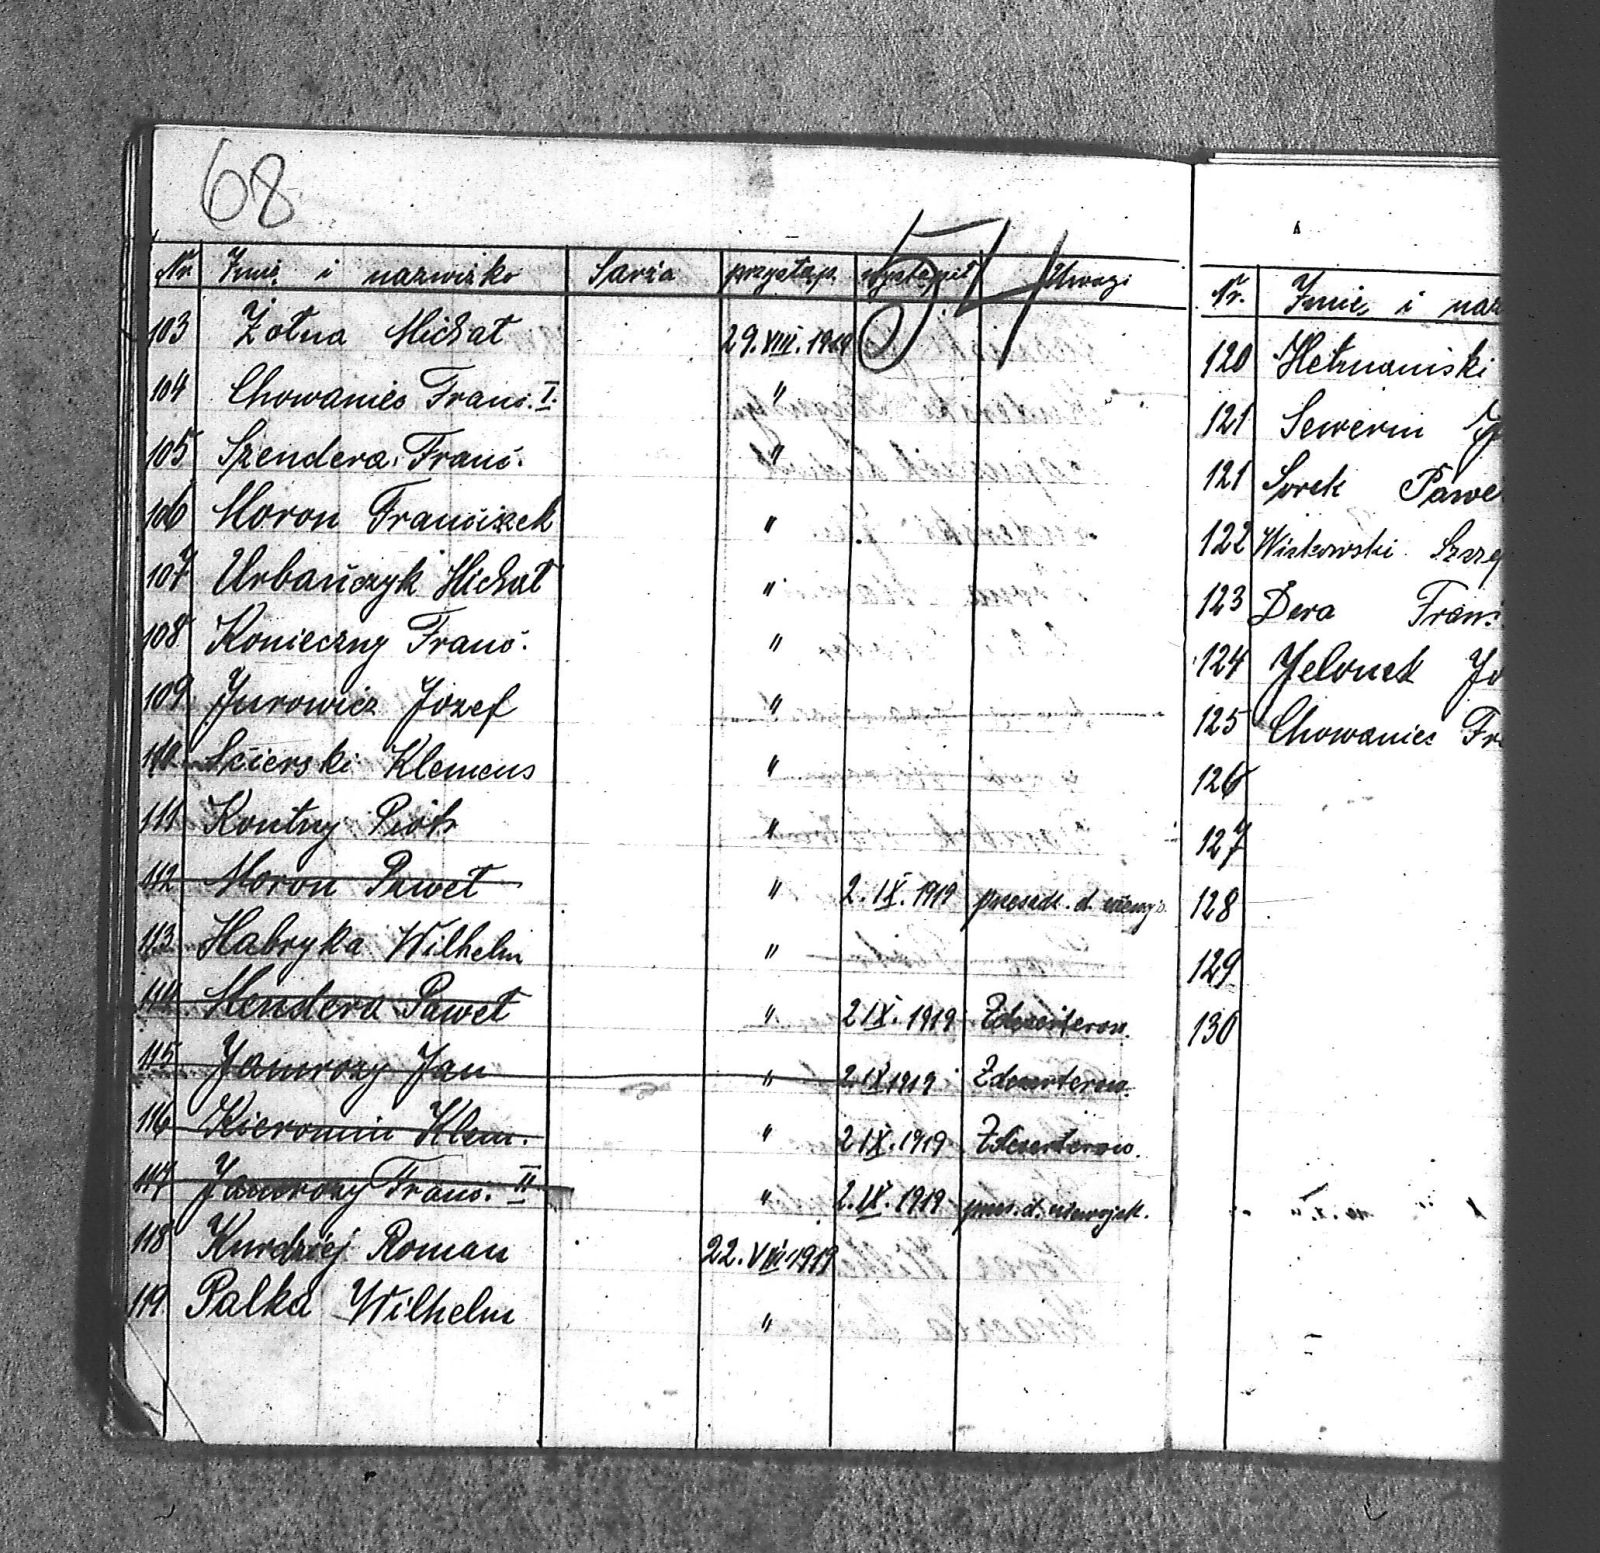 68
54
Nr. Imię i nazwisko Sarża przystąp. wystąpił Uwagi
103 Żołna Michał 29.VIII.1919
104 Chowaniec Franc. I. "
105 Szendera Franc. "
106 Moron Franciszek "
107 Urbańczyk Michał "
108 Konieczny Franc. "
109 Jurowicz Jozef "
110 Scierski Klemens "
111 Kontny Piotr "
112 Moron Paweł " 2.IX.1919
113 Habryka Wilhelm "
114 Mendera Paweł " 2 IX. 1919 Zdezerterow.
115 Jamrozy Jan " 2 IX 1919 Zdezerterow.
116 Kieromin Klem. " 2 IX. 1919 Zdezerterow.
117 Jamrozy Franc. II " 2. IX. 1919
118 Kurdziej Roman 22. VIII. 1919
119 Palka Wilhelm "
Nr. Imię i naz
120 Hetmaniski
121 Sewerin
121 Sorek Pawe
122 Witkowski Szczę
123 Dera Fran
124 Jelonek Jo
125 Chowaniec Fr
126
127
128
129
130